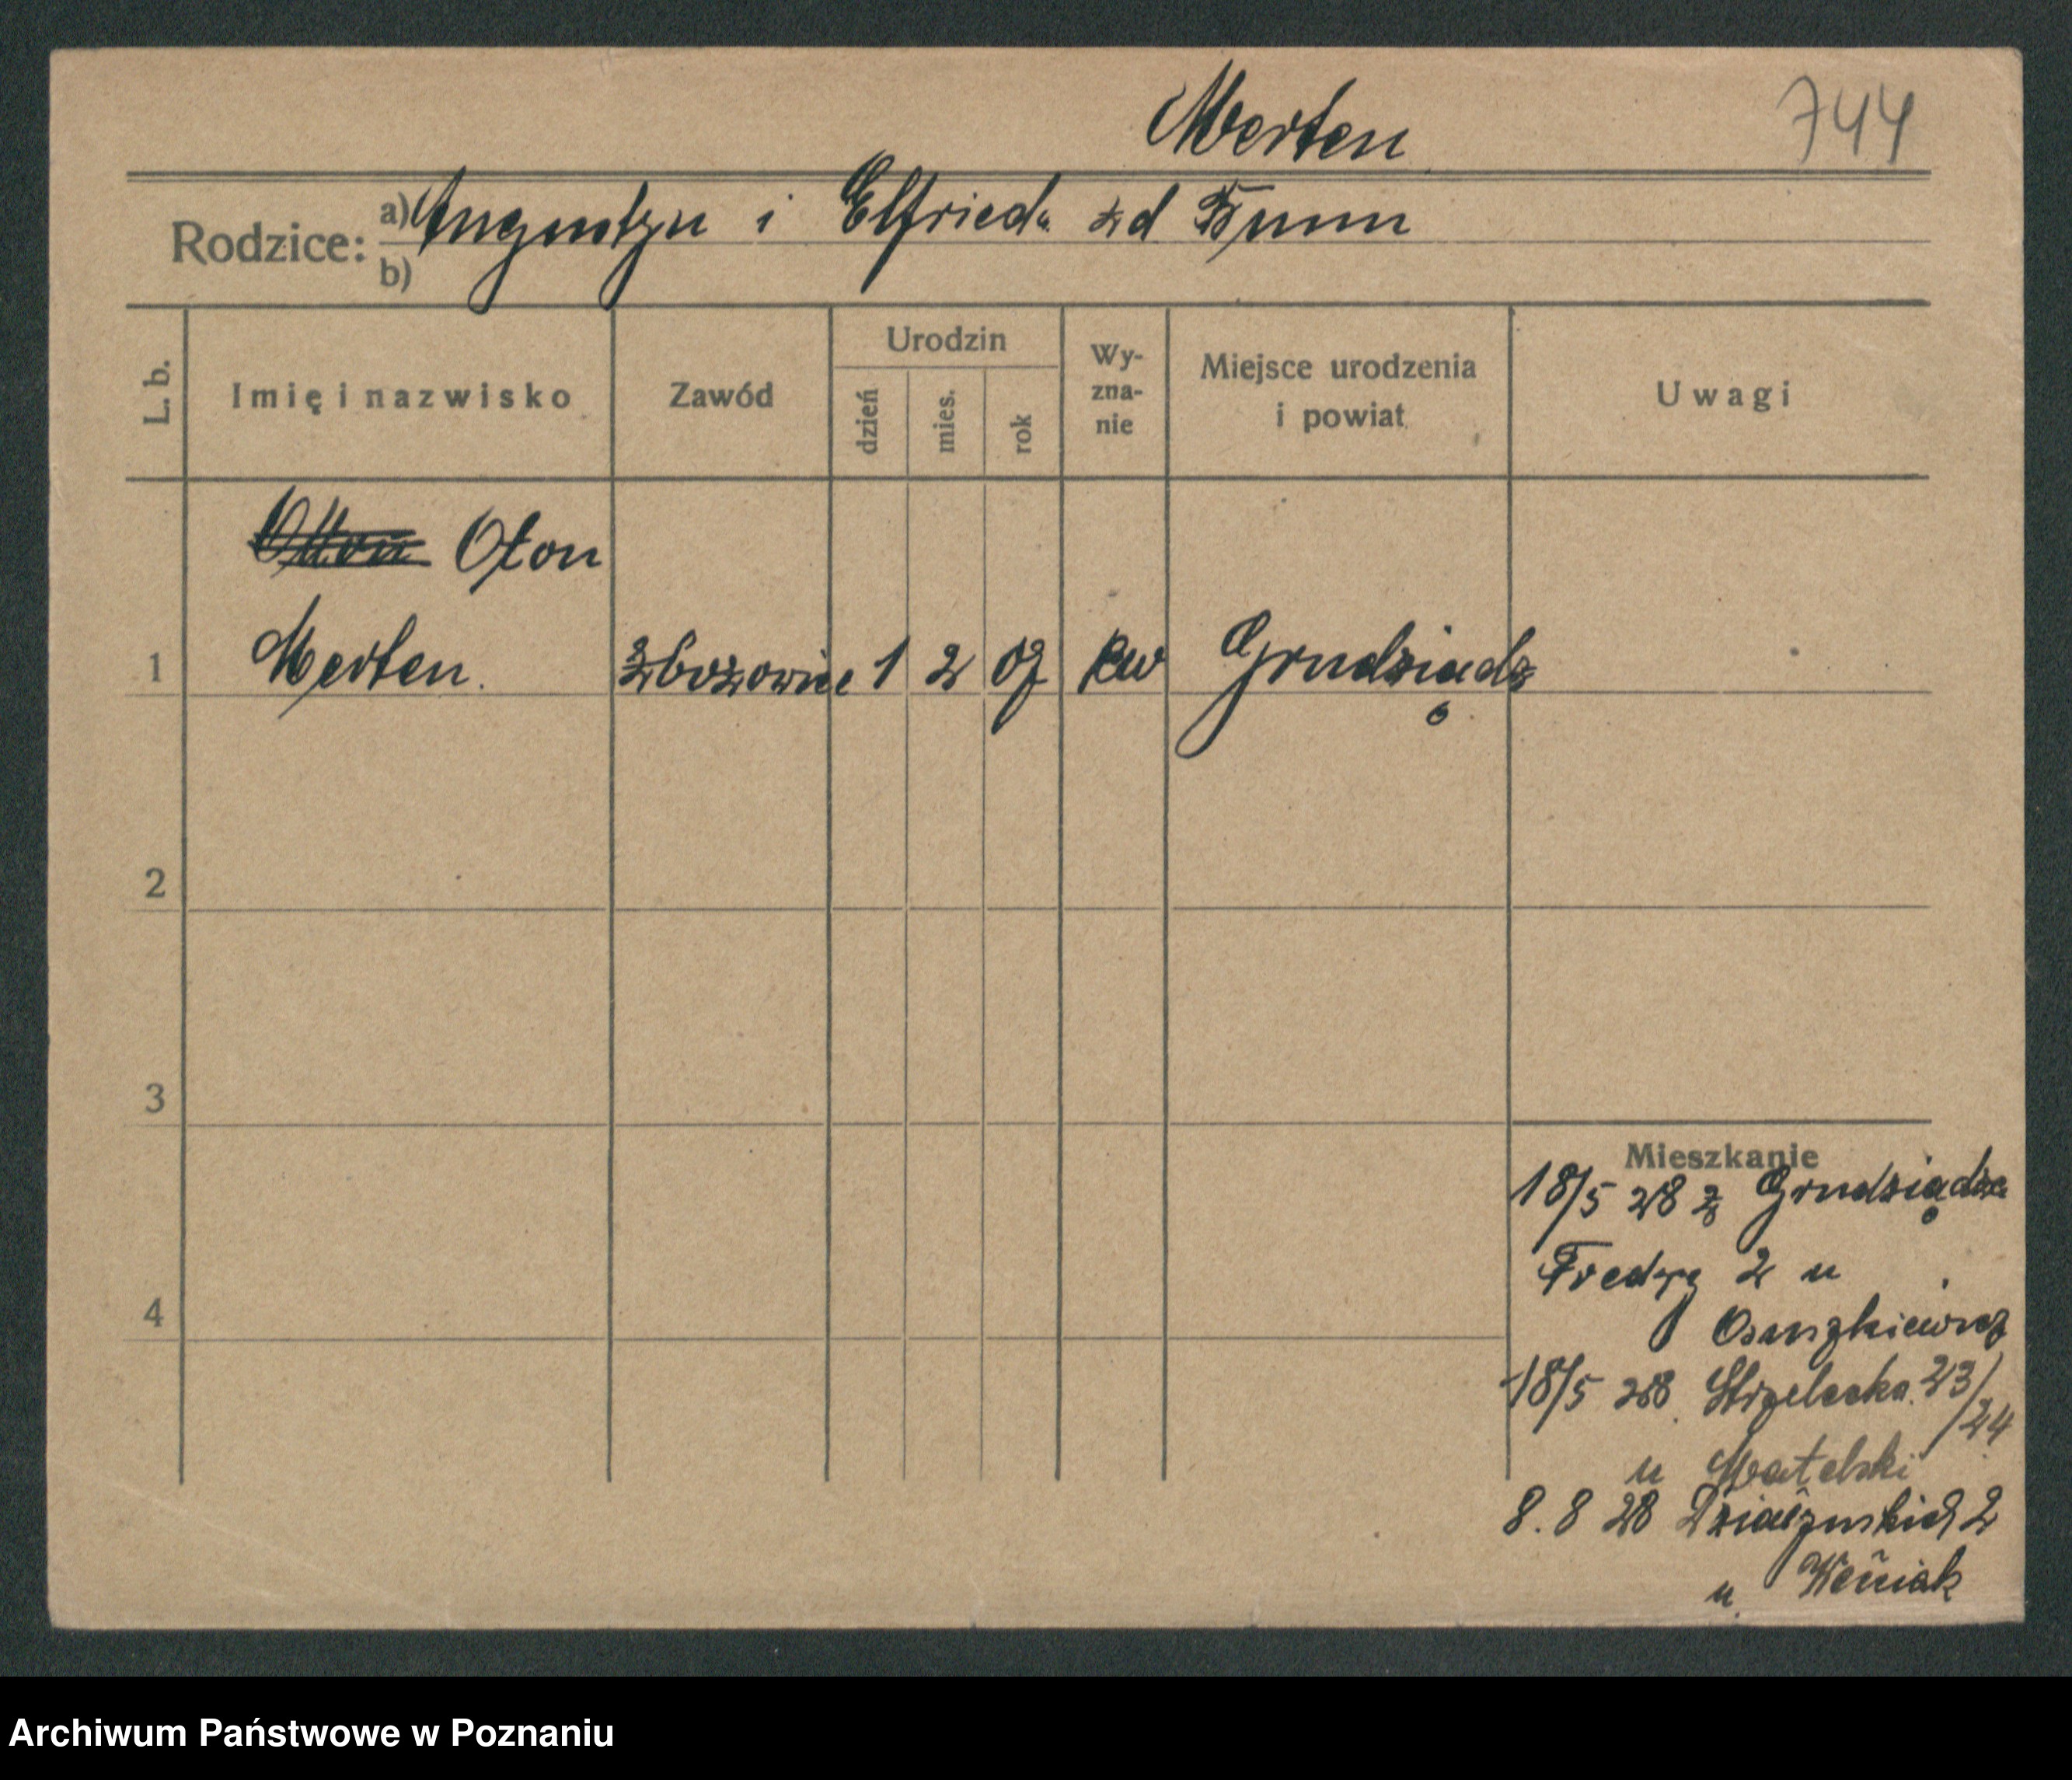 Merten
744
Rodzice: a) Augustyn i Elfrieda zd
b)
L. b.
Imię i nazwisko
Zawód
Urodzin
dzień
mies.
rok
Wy-
zna-
nie
Miejsce urodzenia
i powiat
Uwagi
Otton Oton
1 Merten. zbożowiec 1 2 07 ew Grudziądz
2
3
4
Mieszkanie
18/5 28 z Grudziądza
Fredry 2 u
18/5 28 Strzelecka 23/
24
u Matelski
8.8 28 Działyńskich 2
u
Archiwum Państwowe w Poznaniu